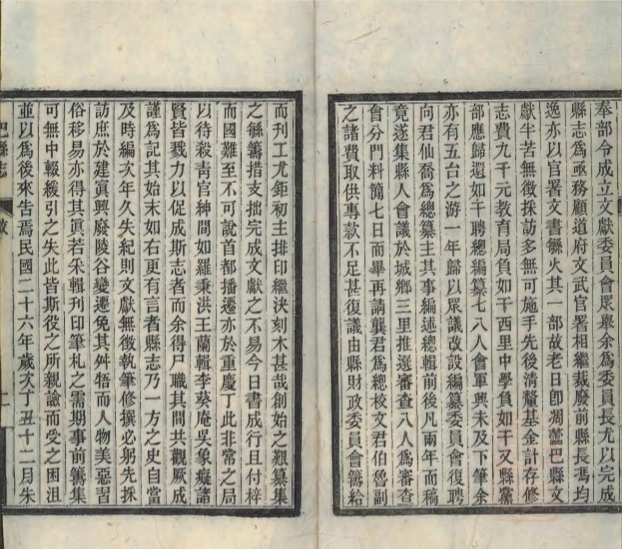 奉部令成立文獻委員會眾舉余爲委員長尤以完成
縣志爲亟務顧道府文武官署相繼裁廢前縣長馮均
逸亦以官署文書燬火其一部故老日卽凋巴縣文
獻半苦無徵採訪多無可施手先後清釐基金計存修
志費九千元教育局負如干西里中學負如干又縣黨
部應歸還如干聘總編纂七八人會軍興未及下筆余
亦有五台之游一年歸以眾議改設編纂委員會復聘
向君仙喬爲總纂主其事編述總輯前後凡兩年而稿
竟遂集縣人會議於城鄉三里推選審查八人爲審查
會分門料簡七日而畢再請龔君爲總校文君伯魯副
之諸費取供專款不足甚復議由縣財政委員會籌給
而刊工尤鉅初主排印繼決刻木甚哉創始之艱纂集
之繇籌措支拙完成文獻之不易今日書成行且付梓
而國難至不可說首都播遷亦於重慶丁此非常之局
以待殺靑官紳間如羅秉洪王蘭輯李葵庵吳象癡諸
賢皆戮力以促成斯志者而余得尸職其間共觀厥成
謹爲記其始末如右更有言者縣志乃一方之史自當
及時編次年久失紀則文獻無徵執筆修撰必躬先採
訪庶於建寘興廢陵谷變遷免其舛牾而人物美惡習
俗移易亦得其眞若采輯刊印筆札之需期事前籌集
可無中輟緩引之失此皆斯役之所親諭而受之困沮
並以爲後來告焉民國二十六年歲次丁丑十二月朱
巴縣志 敘 二